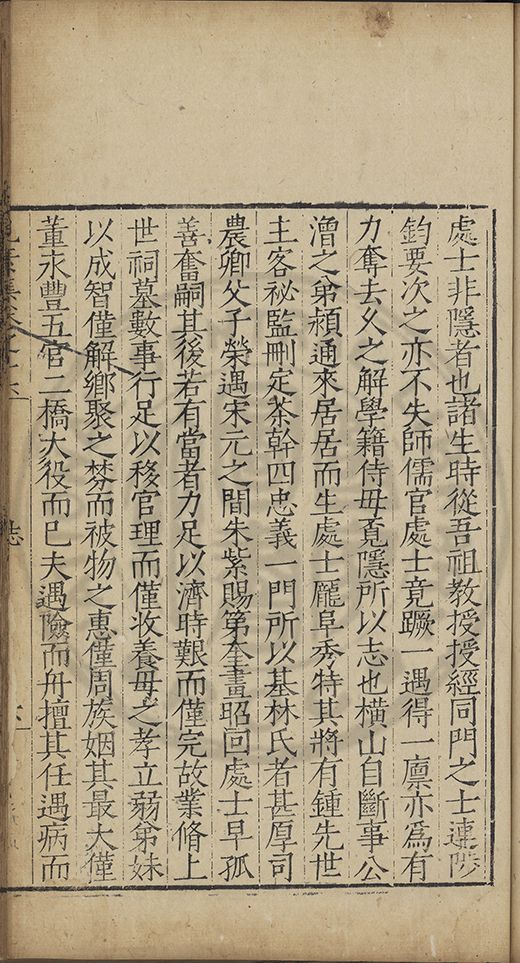 處士非隱者也諸生時從吾祖教授授經同門之士連陟
鈞要次之亦不失師儒官處士竟蹶一遇得一廩亦為有
力奪去乆之解學籍侍毋覔隱所以志也橫山自斷事公
澮之弟頴通來居居而生處士厖阜秀特其將有鍾先世
主客祕監刪定茶幹四忠義一門所以基林氏者甚厚司
農卿父子榮遇宋元之間朱紫賜第奎畫昭回處士早孤
善奮嗣其後若有當者力足以濟時艱而僅完故業脩上
世祠墓數事行足以移官理而僅收養毋之孝立弱弟妹
以成智僅解鄉聚之棼而被物之惠僅周族姻其最大僅
董永豐五官二橋大役而巳夫遇險而舟擅其任遇病而
志
六